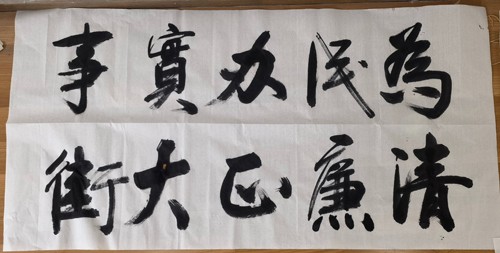 為民办實事
清廉正大街